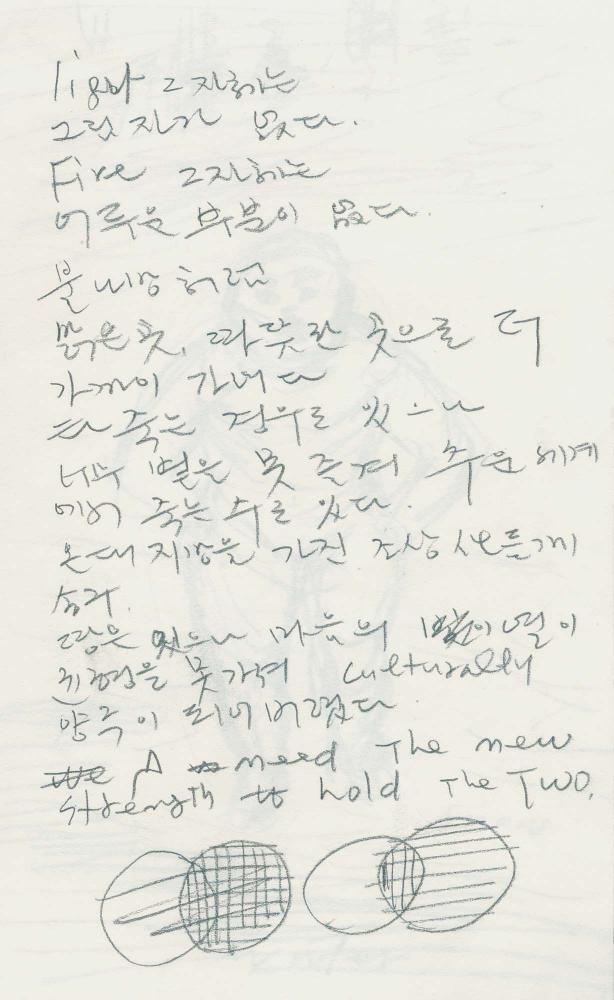 light 그 자체는
그림자가 없다.
Fire 그 자체는
어두운 부분이 없다.
불나방처럼
밝은 곳, 따뜻한 곳으로 더
가까이 가려다
타 죽는 경우도 있으나
너무 별은 못 즐겨 추운 세계
에서 죽는 수도 있다.
온대 지방을 가진 조상
땅은 있으나 마음의 열이
균형을 못 가져 culturally
이 되어 버렸다
A need The new
strength hold The Two.